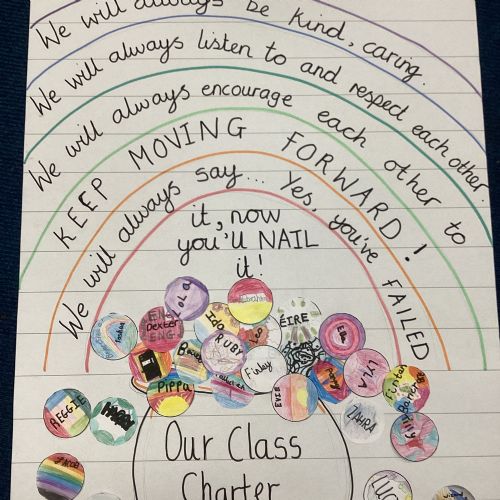 We will always be kind, caring.
We will always listen to and respect each other.
We will always encourage each other to
KEEP MOVING FORWARD!
We will always say... Yes, you've FAILED
it, now
you'll NAIL
it!
Lola
ENG
Dexter
ENG
Isla
RUBY
ÉIRE
Ella
Finlay
Pippa
EVIE
LYLA
Finter
ZAHRA
REGGIE
HARRY
JACOB
Our Class
Charter